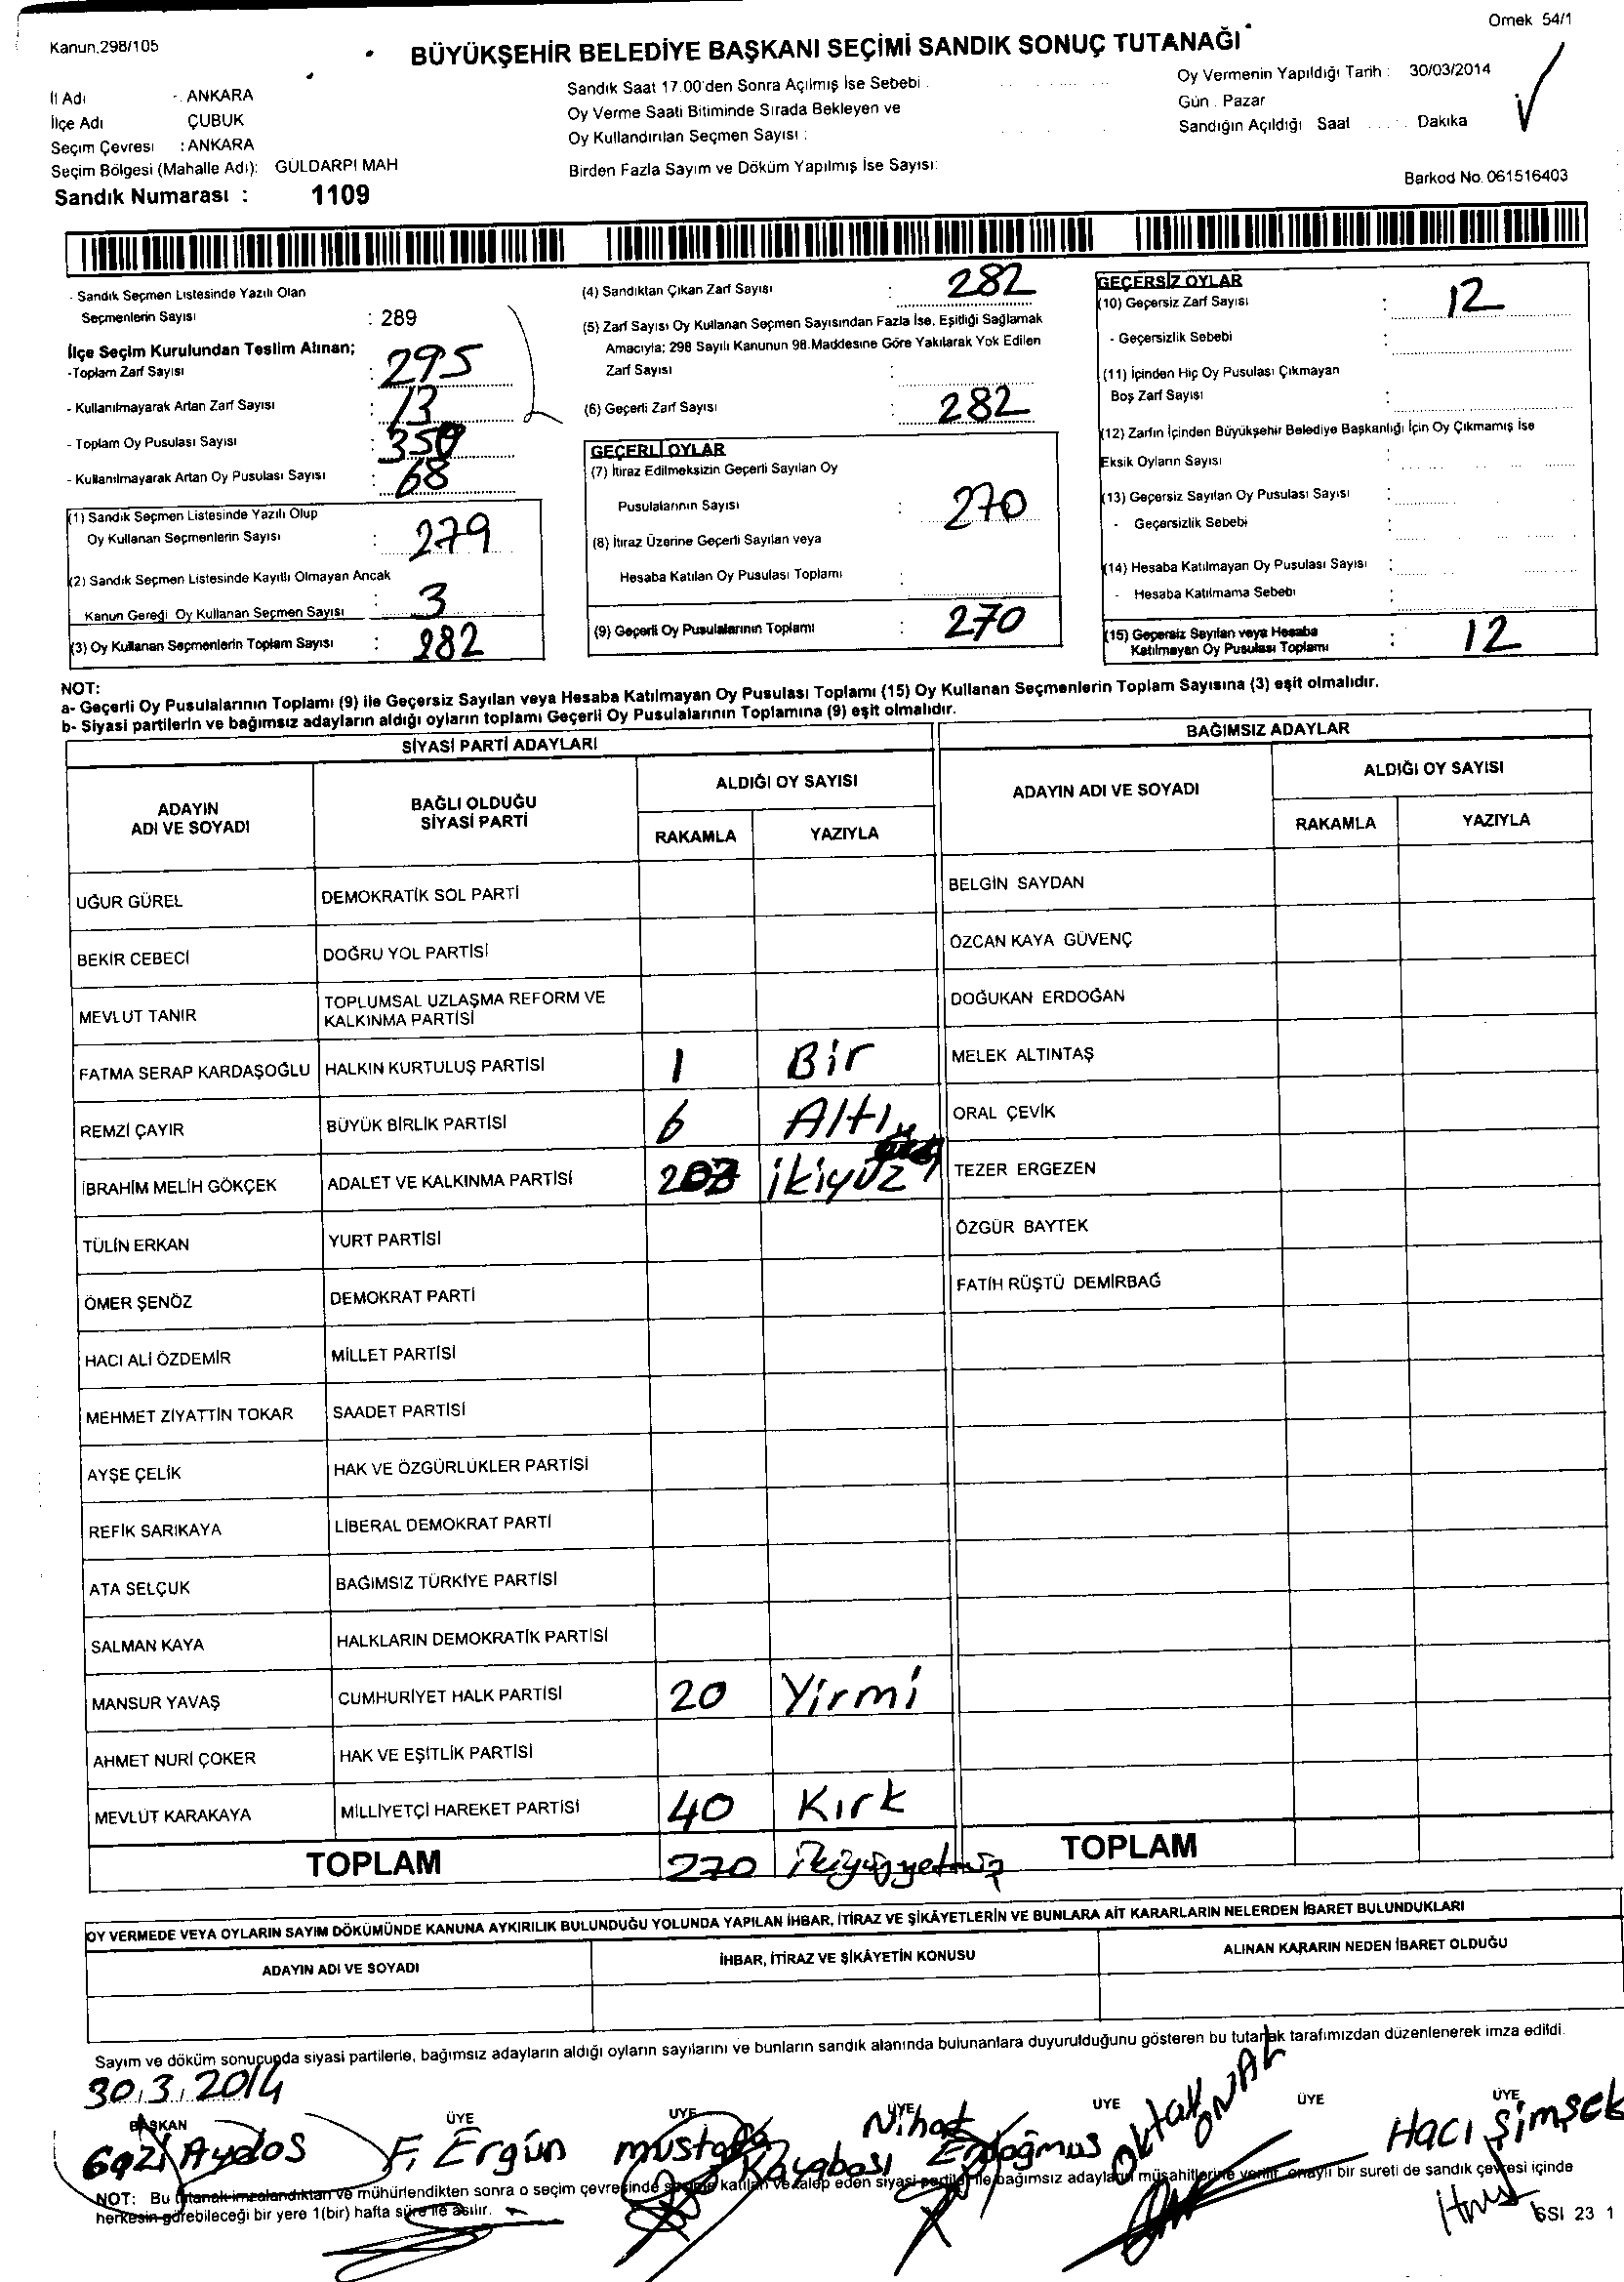 Ornek 54/1
Kanun.298/105
BÜYÜKŞEHİR BELEDİYE BAŞKANI SEÇİMİ SANDIK SONUÇ TUTANAĞI
İl Adı : ANKARA
İlçe Adı ÇUBUK
Seçim Çevresi : ANKARA
Seçim Bölgesi (Mahalle Adı): GÜLDARPI MAH
Sandık Numarası : 1109
Sandık Saat 17.00'den Sonra Açılmış İse Sebebi
Oy Verme Saati Bitiminde Sırada Bekleyen ve
Oy Kullandırılan Seçmen Sayısı :
Birden Fazla Sayım ve Döküm Yapılmış İse Sayısı:
Oy Vermenin Yapıldığı Tarih : 30/03/2014
Gün . Pazar
Sandığın Açıldığı Saat ..... Dakika
Barkod No. 061516403
- Sandık Seçmen Listesinde Yazılı Olan
Seçmenlerin Sayısı : 289
İlçe Seçim Kurulundan Teslim Alınan;
-Toplam Zarf Sayısı : 295
- Kullanılmayarak Artan Zarf Sayısı : 13
- Toplam Oy Pusulası Sayısı : 350
- Kullanılmayarak Artan Oy Pusulası Sayısı : 68
(1) Sandık Seçmen Listesinde Yazılı Olup
Oy Kullanan Seçmenlerin Sayısı : 279
(2) Sandık Seçmen Listesinde Kayıtlı Olmayan Ancak
Kanun Gereği Oy Kullanan Seçmen Sayısı : 3
(3) Oy Kullanan Seçmenlerin Toplam Sayısı : 282
(4) Sandıktan Çıkan Zarf Sayısı : 282
(5) Zarf Sayısı Oy Kullanan Seçmen Sayısından Fazla İse, Eşitliği Sağlamak
Amacıyla; 298 Sayılı Kanunun 98.Maddesine Göre Yakılarak Yok Edilen
Zarf Sayısı :
(6) Geçerli Zarf Sayısı : 282
GEÇERLİ OYLAR
(7) İtiraz Edilmeksizin Geçerli Sayılan Oy
Pusulalarının Sayısı : 270
(8) İtiraz Üzerine Geçerli Sayılan veya
Hesaba Katılan Oy Pusulası Toplamı :
(9) Geçerli Oy Pusulalarının Toplamı : 270
GEÇERSİZ OYLAR
(10) Geçersiz Zarf Sayısı : 12
- Geçersizlik Sebebi :
(11) İçinden Hiç Oy Pusulası Çıkmayan
Boş Zarf Sayısı :
(12) Zarfın İçinden Büyükşehir Belediye Başkanlığı İçin Oy Çıkmamış İse
Eksik Oyların Sayısı :
(13) Geçersiz Sayılan Oy Pusulası Sayısı :
- Geçersizlik Sebebi :
(14) Hesaba Katılmayan Oy Pusulası Sayısı :
- Hesaba Katılmama Sebebi :
(15) Geçersiz Sayılan veya Hesaba
Katılmayan Oy Pusulası Toplamı : 12
NOT:
a- Geçerli Oy Pusulalarının Toplamı (9) ile Geçersiz Sayılan veya Hesaba Katılmayan Oy Pusulası Toplamı (15) Oy Kullanan Seçmenlerin Toplam Sayısına (3) eşit olmalıdır.
b- Siyasi partilerin ve bağımsız adayların aldığı oyların toplamı Geçerli Oy Pusulalarının Toplamına (9) eşit olmalıdır.
SİYASİ PARTİ ADAYLARI
BAĞIMSIZ ADAYLAR
ADAYIN
ADI VE SOYADI
BAĞLI OLDUĞU
SİYASİ PARTİ
ALDIĞI OY SAYISI
RAKAMLA YAZIYLA
ADAYIN ADI VE SOYADI
ALDIĞI OY SAYISI
RAKAMLA YAZIYLA
UĞUR GÜREL DEMOKRATİK SOL PARTİ BELGİN SAYDAN
BEKİR CEBECİ DOĞRU YOL PARTİSİ ÖZCAN KAYA GÜVENÇ
MEVLUT TANIR TOPLUMSAL UZLAŞMA REFORM VE
KALKINMA PARTİSİ DOĞUKAN ERDOĞAN
FATMA SERAP KARDAŞOĞLU HALKIN KURTULUŞ PARTİSİ 1 Bir MELEK ALTINTAŞ
REMZİ ÇAYIR BÜYÜK BİRLİK PARTİSİ 6 Altı ORAL ÇEVİK
İBRAHİM MELİH GÖKÇEK ADALET VE KALKINMA PARTİSİ 203 ikiyüz TEZER ERGEZEN
TÜLİN ERKAN YURT PARTİSİ ÖZGÜR BAYTEK
ÖMER ŞENÖZ DEMOKRAT PARTİ FATİH RÜŞTÜ DEMİRBAĞ
HACI ALİ ÖZDEMİR MİLLET PARTİSİ
MEHMET ZİYATTİN TOKAR SAADET PARTİSİ
AYŞE ÇELİK HAK VE ÖZGÜRLÜKLER PARTİSİ
REFİK SARIKAYA LİBERAL DEMOKRAT PARTİ
ATA SELÇUK BAĞIMSIZ TÜRKİYE PARTİSİ
SALMAN KAYA HALKLARIN DEMOKRATİK PARTİSİ
MANSUR YAVAŞ CUMHURİYET HALK PARTİSİ 20 Yirmi
AHMET NURİ ÇOKER HAK VE EŞİTLİK PARTİSİ
MEVLÜT KARAKAYA MİLLİYETÇİ HAREKET PARTİSİ 40 Kırk
TOPLAM 270 ikiyüzyetmiş TOPLAM
OY VERMEDE VEYA OYLARIN SAYIM DÖKÜMÜNDE KANUNA AYKIRILIK BULUNDUĞU YOLUNDA YAPILAN İHBAR, İTİRAZ VE ŞİKÂYETLERİN VE BUNLARA AİT KARARLARIN NELERDEN İBARET BULUNDUKLARI
ADAYIN ADI VE SOYADI İHBAR, İTİRAZ VE ŞİKÂYETİN KONUSU ALINAN KARARIN NEDEN İBARET OLDUĞU
Sayım ve döküm sonucunda siyasi partilerle, bağımsız adayların aldığı oyların sayılarını ve bunların sandık alanında bulunanlara duyurulduğunu gösteren bu tutanak tarafımızdan düzenlenerek imza edildi.
30.3.2014
BAŞKAN ÜYE ÜYE ÜYE ÜYE ÜYE ÜYE
Gazi Aydos F. Ergün Mustafa Kayabası Nihat Erdoğmus Oktay ÖNAL Hacı Şimşek
NOT: Bu tutanak imzalandıktan ve mühürlendikten sonra o seçim çevresinde seçime katılan ve talep eden siyasi partiler ile bağımsız adayların müşahitlerine verilir, onaylı bir sureti de sandık çevresi içinde
herkesin görebileceği bir yere 1(bir) hafta süre ile asılır.
SSI 23 1